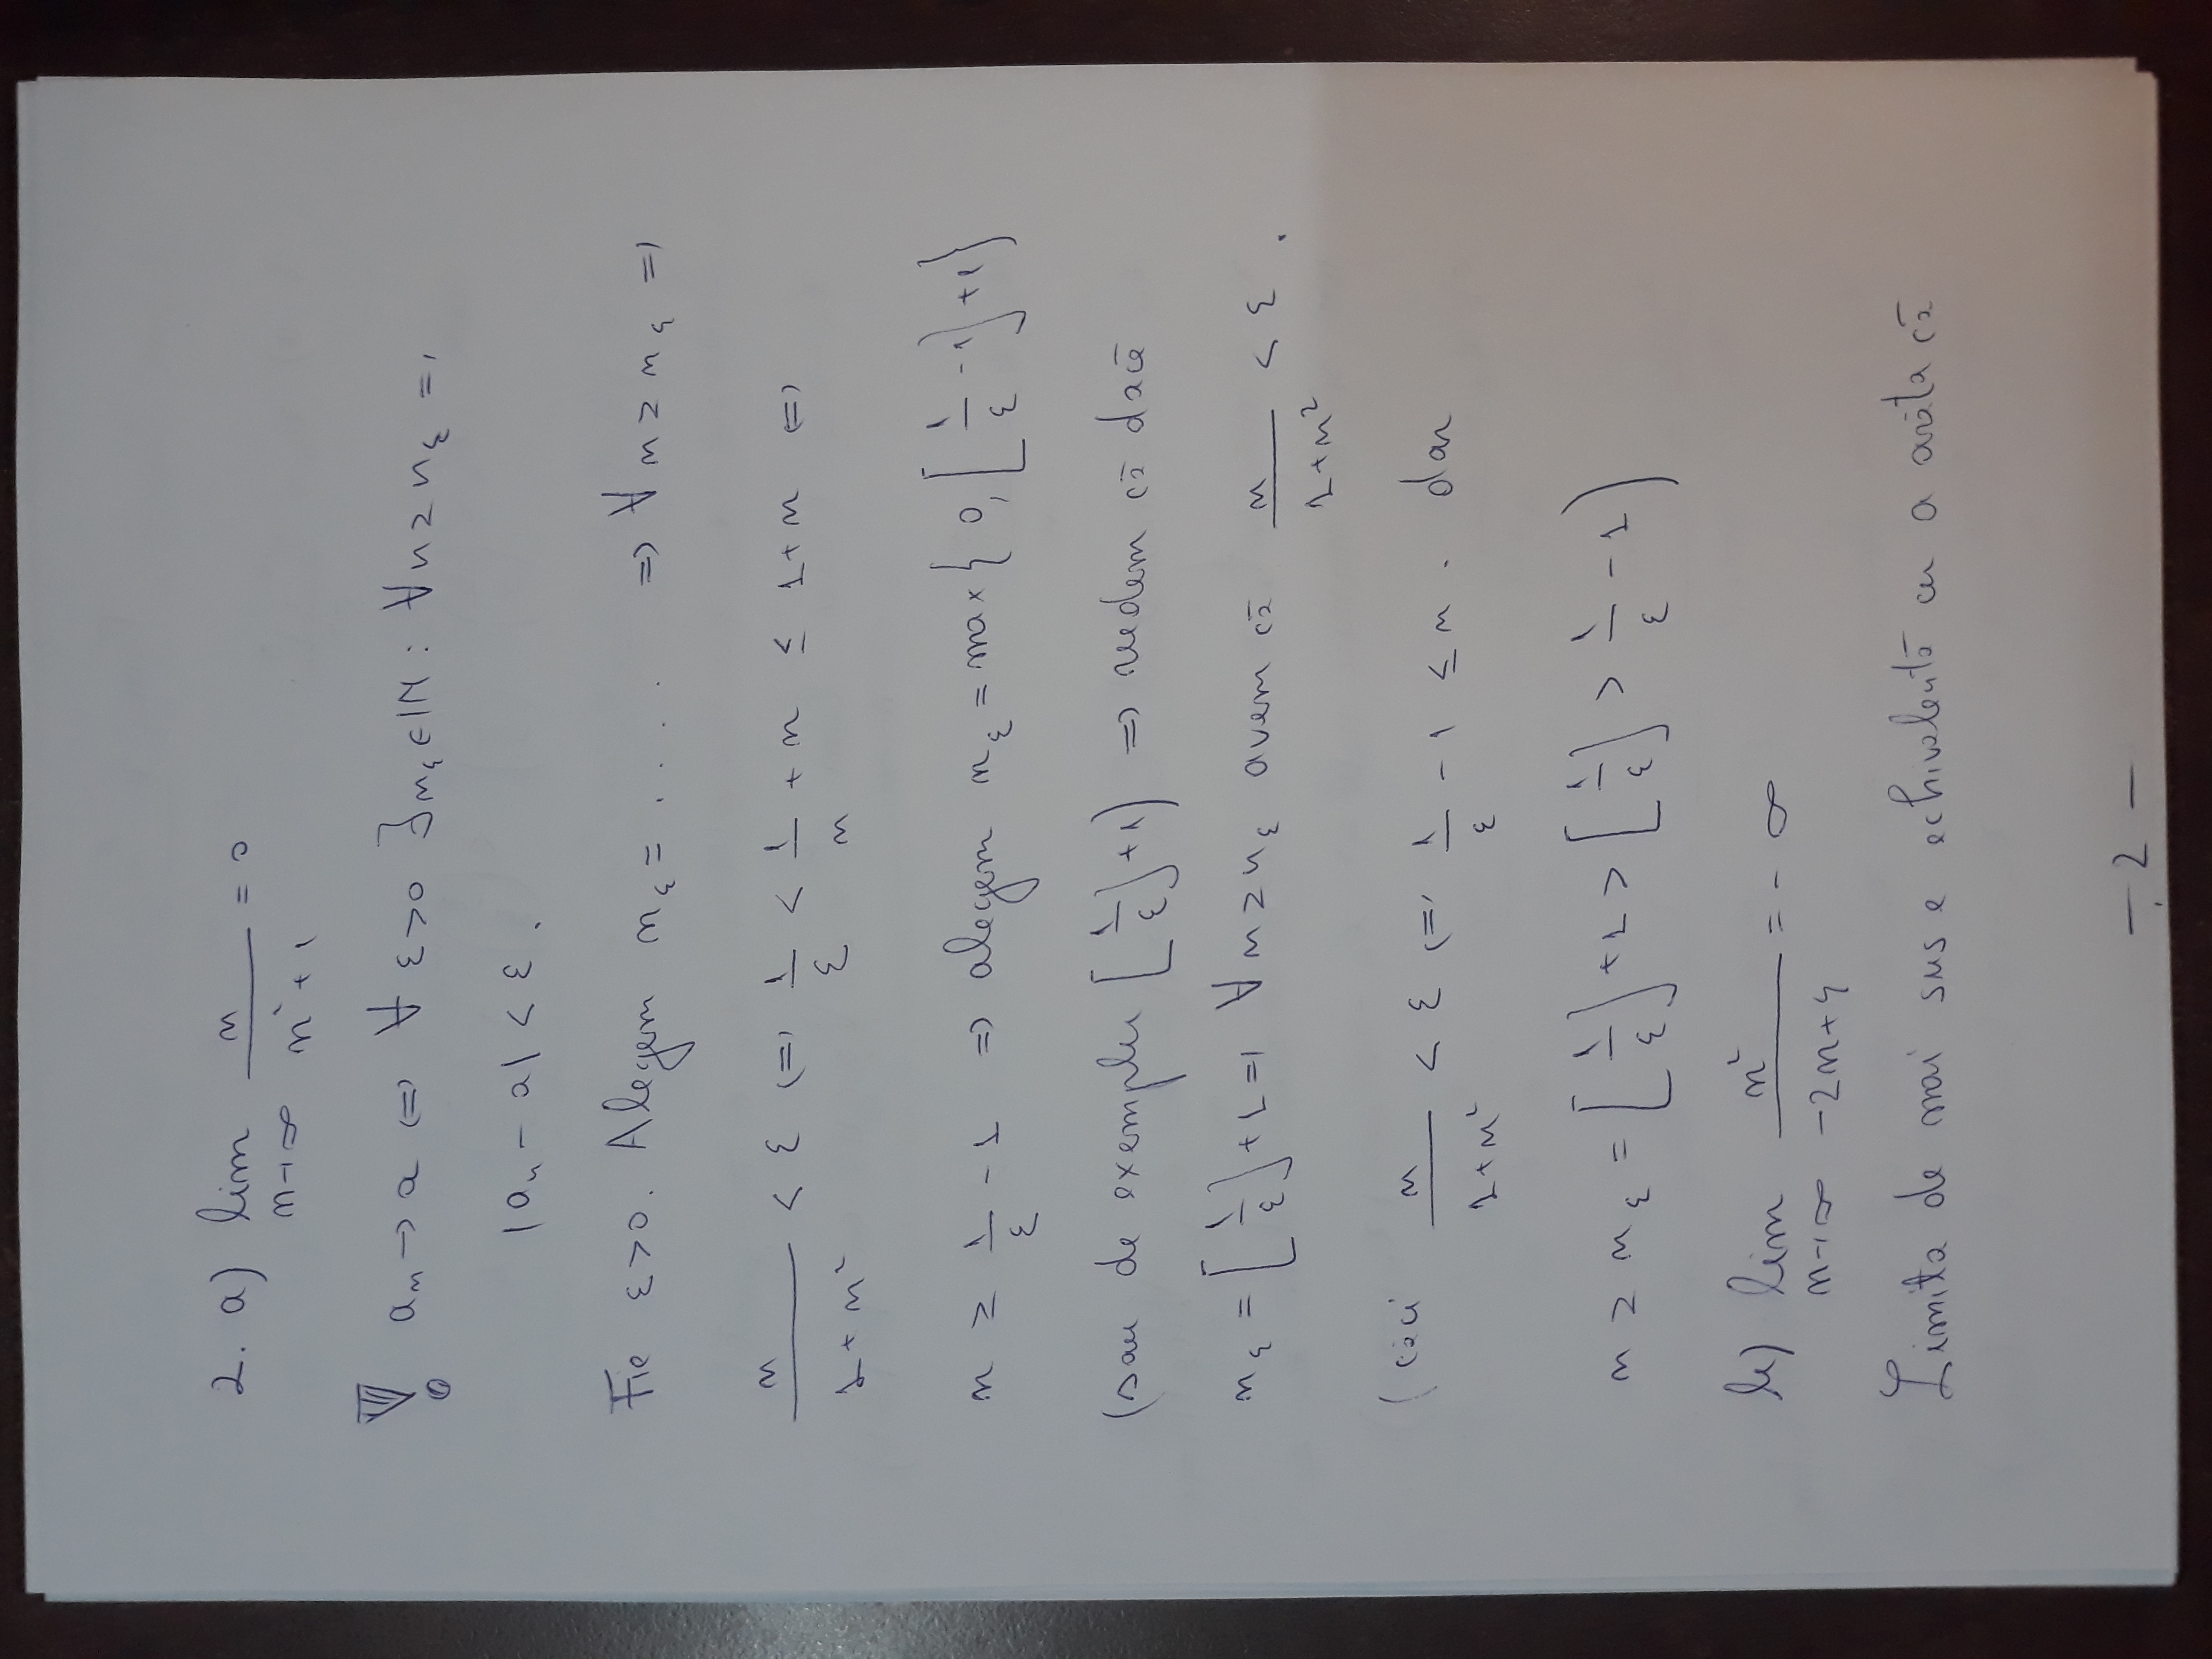 2. a) lim n/(n²+1) = 0
n→∞
! aₙ → a ⇔ ∀ ε>0 ∃ n_ε ∈ ℕ : ∀ n ≥ n_ε ⇒
|aₙ - a| < ε.
Fie ε>0. Alegem n_ε = . . . . ⇒ ∀ n ≥ n_ε ⇒
n/(1+n²) < ε ⇔ 1/ε < 1/n + n ≤ 1+n ⇔
n ≥ 1/ε - 1 ⇒ alegem n_ε = max{0, [1/ε - 1] + 1}
(sau de exemplu [1/ε] + 1) ⇒ vedem că dacă
n_ε = [1/ε] + 1 ⇒ ∀ n ≥ n_ε avem că n/(1+n²) < ε.
(căci n/(1+n²) < ε ⇔ 1/ε - 1 ≤ n. dar
n ≥ n_ε = [1/ε] + 1 > [1/ε] > 1/ε - 1)
b) lim n²/(-2n+4) = -∞
n→∞
Limita de mai sus e echivalentă cu a arăta că
- 2 -